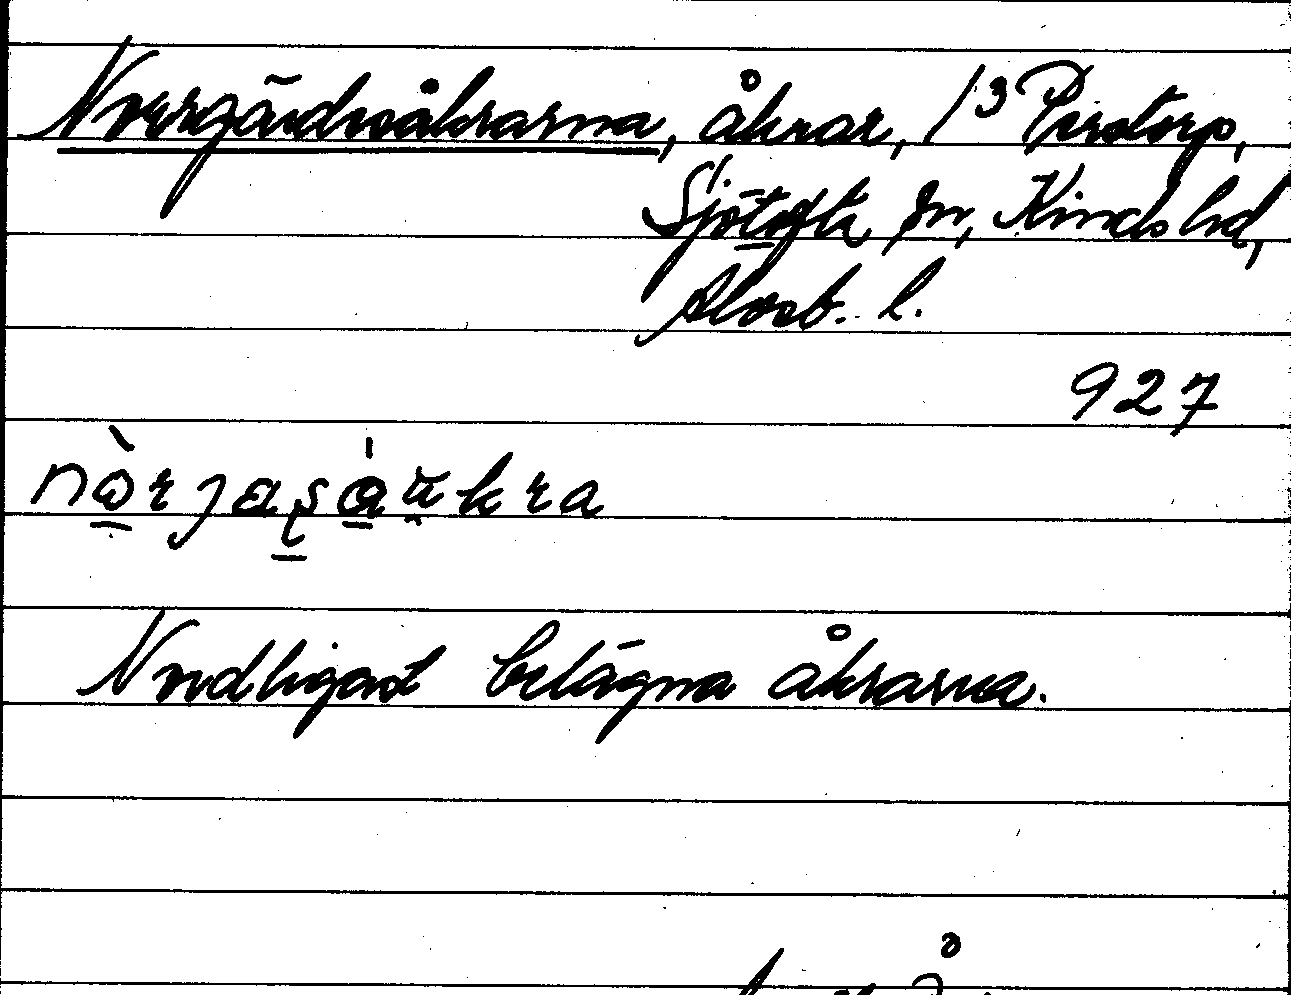 Norrgärdsåkrarna, åkrar, 1/3 Perstorp,
Sjötofta sn, Kinds hd,
Älvsb. l.
927
nòrjasáu̯kra
Nordligast belägna åkrarna.